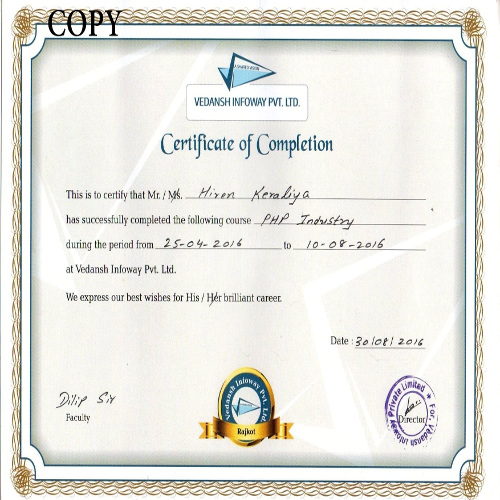 COPY
VEDANSH INFOWAY PVT. LTD.
Certificate of Completion
This is to certify that Mr. / Ms. Hiren Keraliya
has successfully completed the following course PHP Industry
during the period from 25-04-2016 to 10-08-2016
at Vedansh Infoway Pvt. Ltd.
We express our best wishes for His / Her brilliant career.
Date : 30/08/2016
Dilip Sir
Faculty
Vedansh Infoway Pvt. Ltd.
Rajkot
For, Vedansh Infoway Private Limited
Director